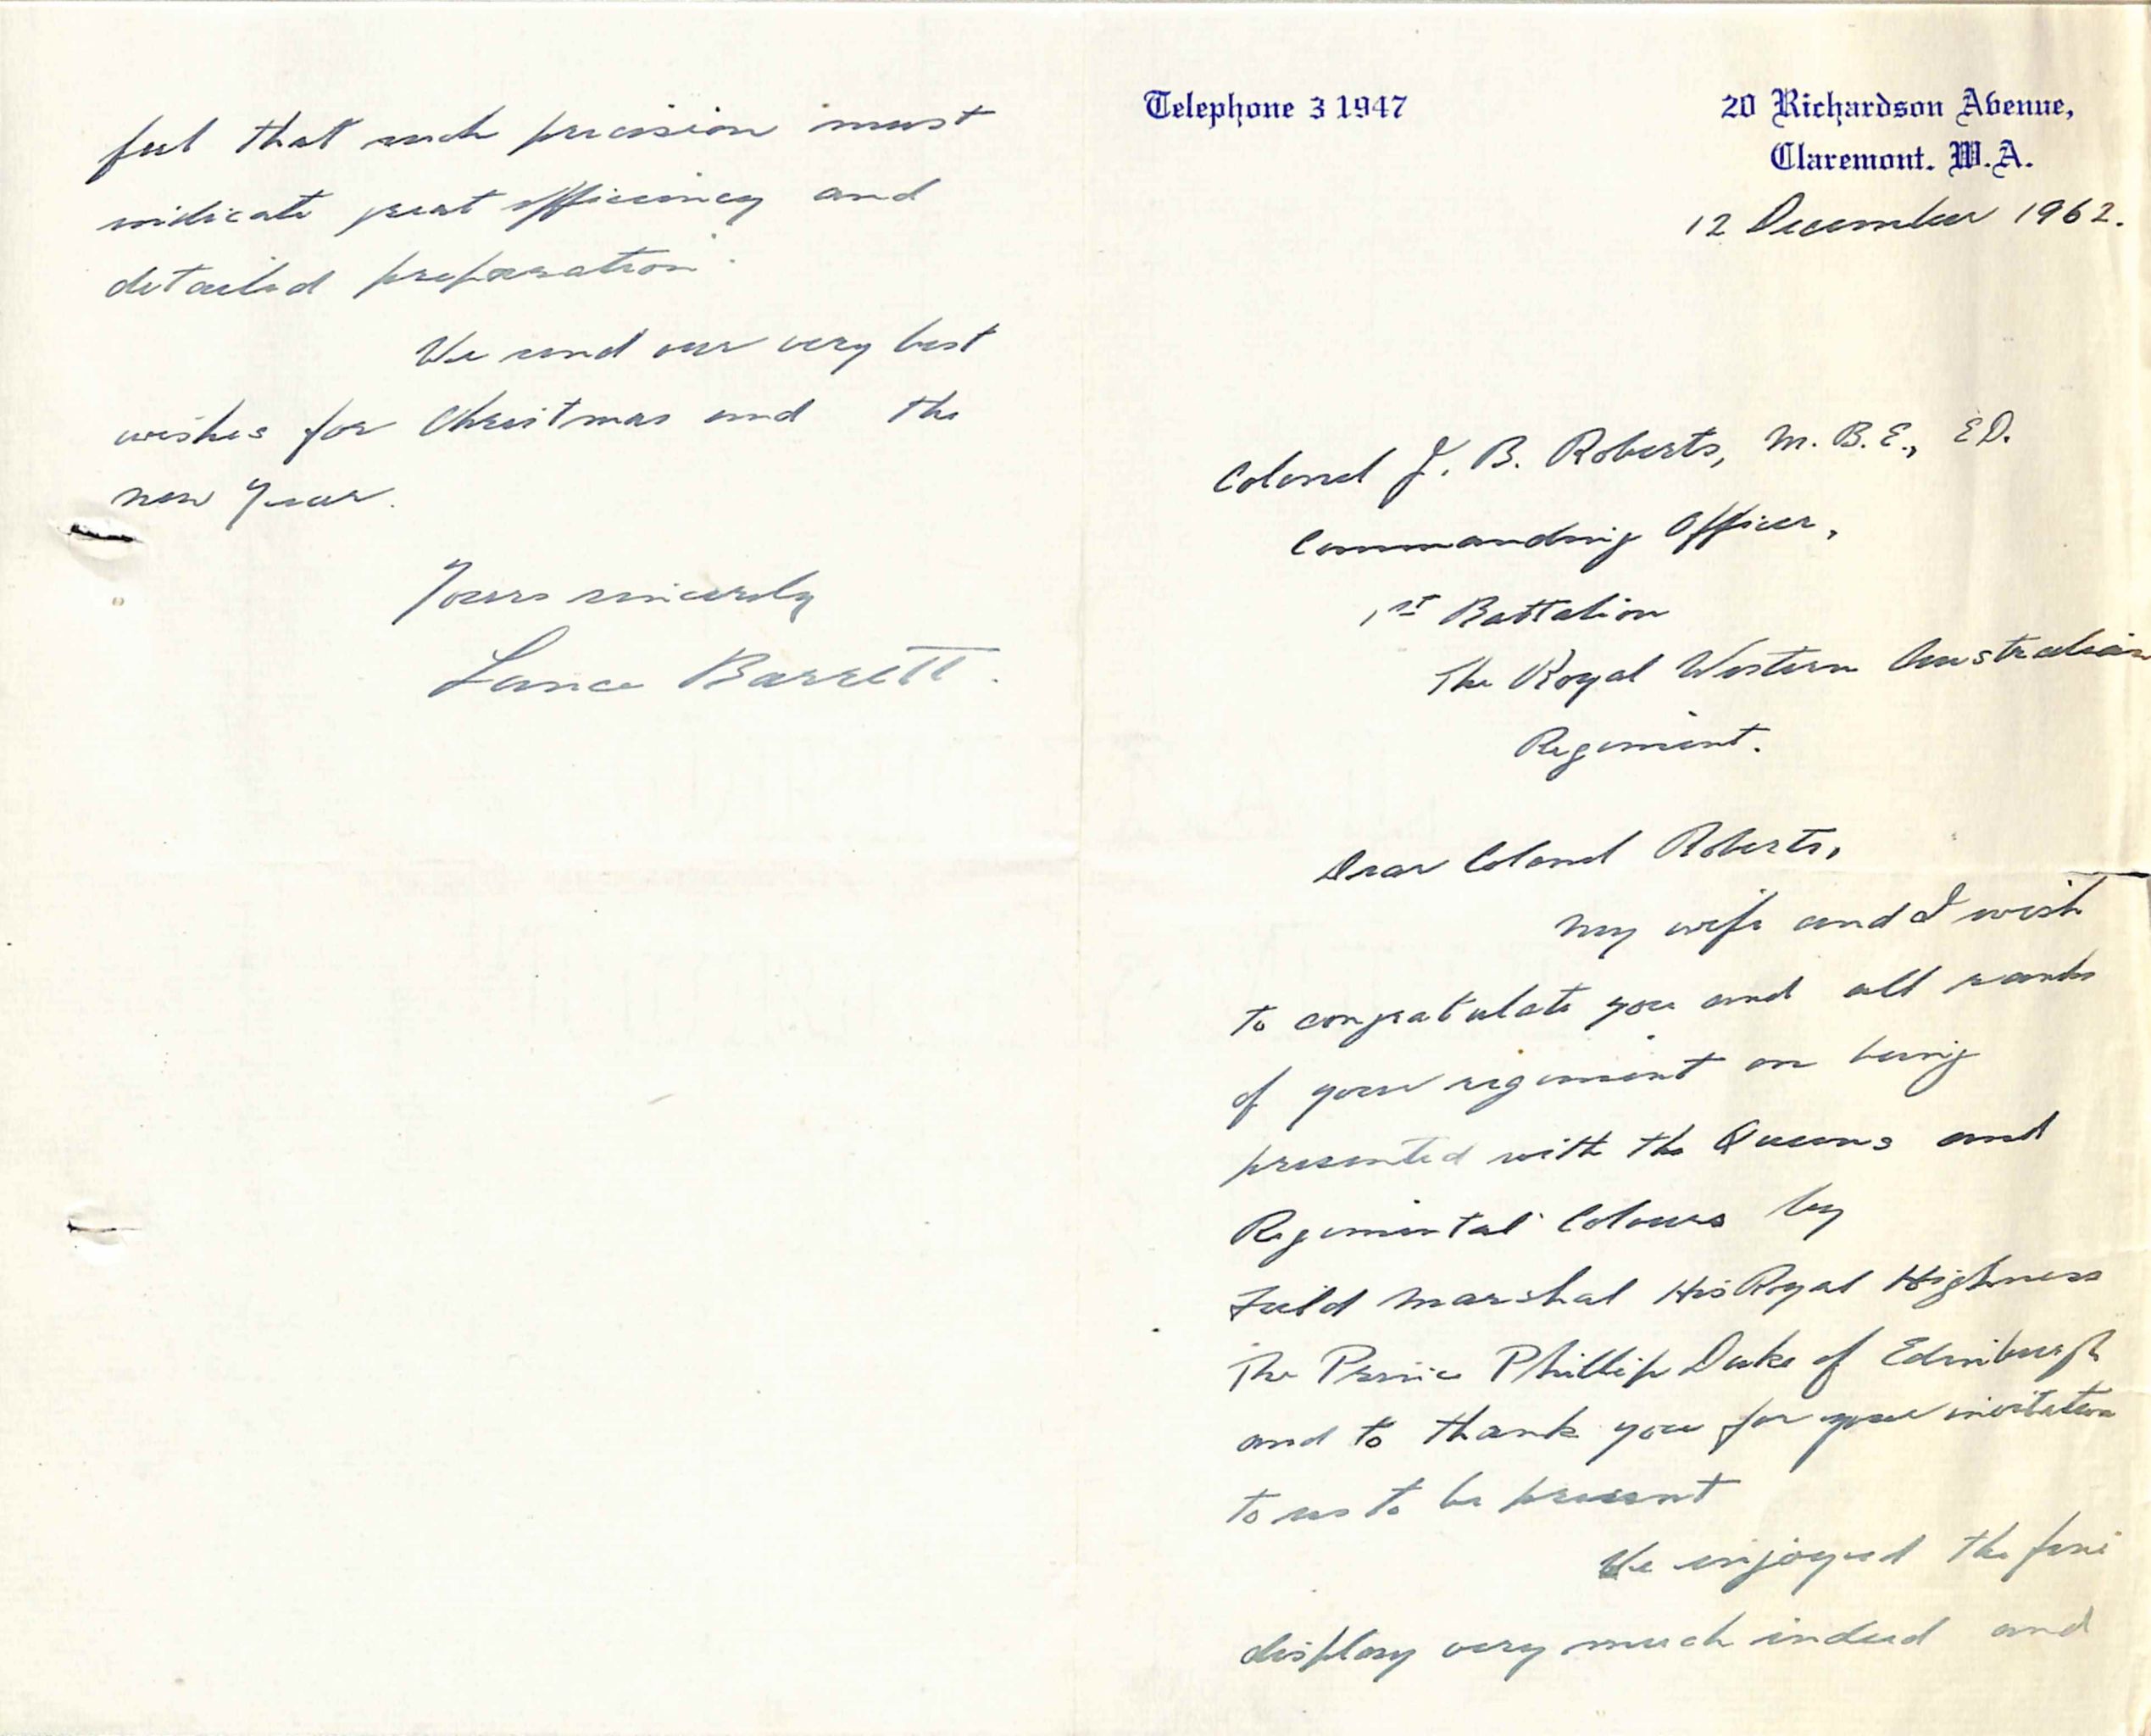 Telephone 3 1947
20 Richardson Avenue,
Claremont. W.A.
12 December 1962.
Colonel J. B. Roberts, M.B.E., ED.
Commanding Officer,
1st Battalion
The Royal Western Australian
Regiment.
Dear Colonel Roberts,
My wife and I wish
to congratulate you and all ranks
of your regiment on being
presented with the Queens and
Regimental Colours by
Field Marshal His Royal Highness
The Prince Phillip Duke of Edinburgh
and to thank you for your invitation
to us to be present
We enjoyed the fine
display very much indeed and
feel that such precision must
indicate great efficiency and
detailed preparation.
We send our very best
wishes for Christmas and the
new Year.
Yours sincerely
Lance Barrett.